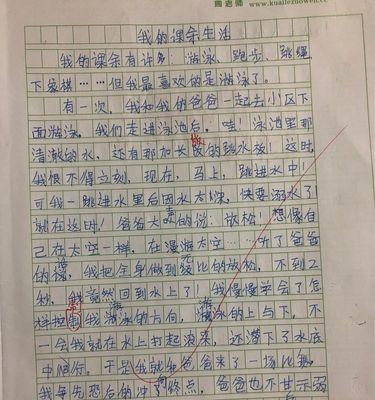 周老师
www.kuailezuowen.c
我的课余生活
我的课余有许多：游泳、跑步、跳绳、
下象棋……但我最喜欢的是游泳了。
有一次，我和我的爸爸一起去小区下
面游泳，我们走进泳池后，哇！泳池里那
清澈的水，还有那加长版的跳水板！这时，
我恨不得立刻，现在，马上，跳进水中！
可我一跳进水里后因水太深，快要溺水了
就在这时！爸爸大声的说：放松！想像自
己在太空一样，在漫游太空……听了爸爸
的话，我把全身做到无比的放松，不到2
秒，我竟然回到水上了！我慢慢学会了怎
样控制我游泳的方向，游泳的上与下，不
一会我就在水上打起浪来，还潜下了水底
中爬行。于是我就和爸爸来了一场比赛，
我争先恐后的冲向终点，爸爸也不甘示弱